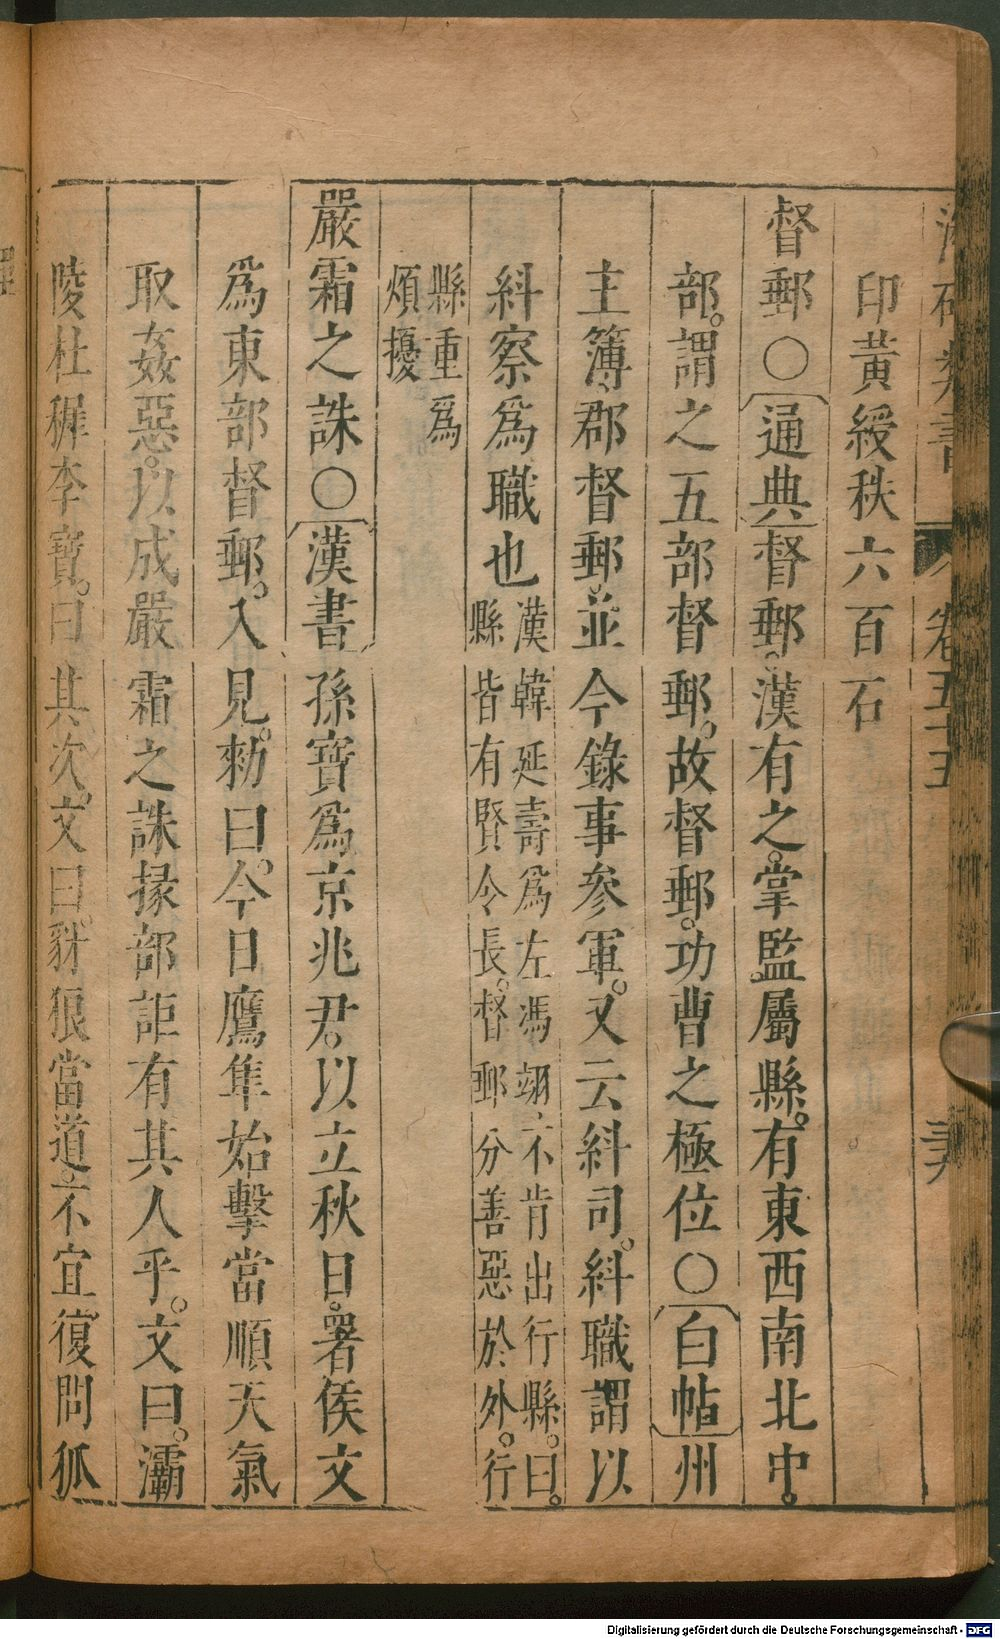 卷五十五
印黃綬秩六百石
督郵○通典督郵。漢有之。掌監屬縣。有東西南北中。
部。謂之五部督郵。故督郵。功曹之極位○白帖州
主簿、郡督郵。並今錄事參軍。又云糾司。糾職謂以
糾察爲職也漢韓延壽爲左馮翊、不肯出行縣。曰。
縣皆有賢令長。督郵分善惡於外。行
縣重爲
煩擾
嚴霜之誅○漢書孫寶爲京兆君。以立秋日。署侯文
爲東部督郵。入見。勑曰。今日鷹隼始擊當順天氣
取姦惡。以成嚴霜之誅掾部詎有其人乎。文曰。灞
陵杜穉李寶。曰其次。文曰。豺狼當道、不宜復問狐
Digitalisierung gefördert durch die Deutsche Forschungsgemeinschaft - DFG